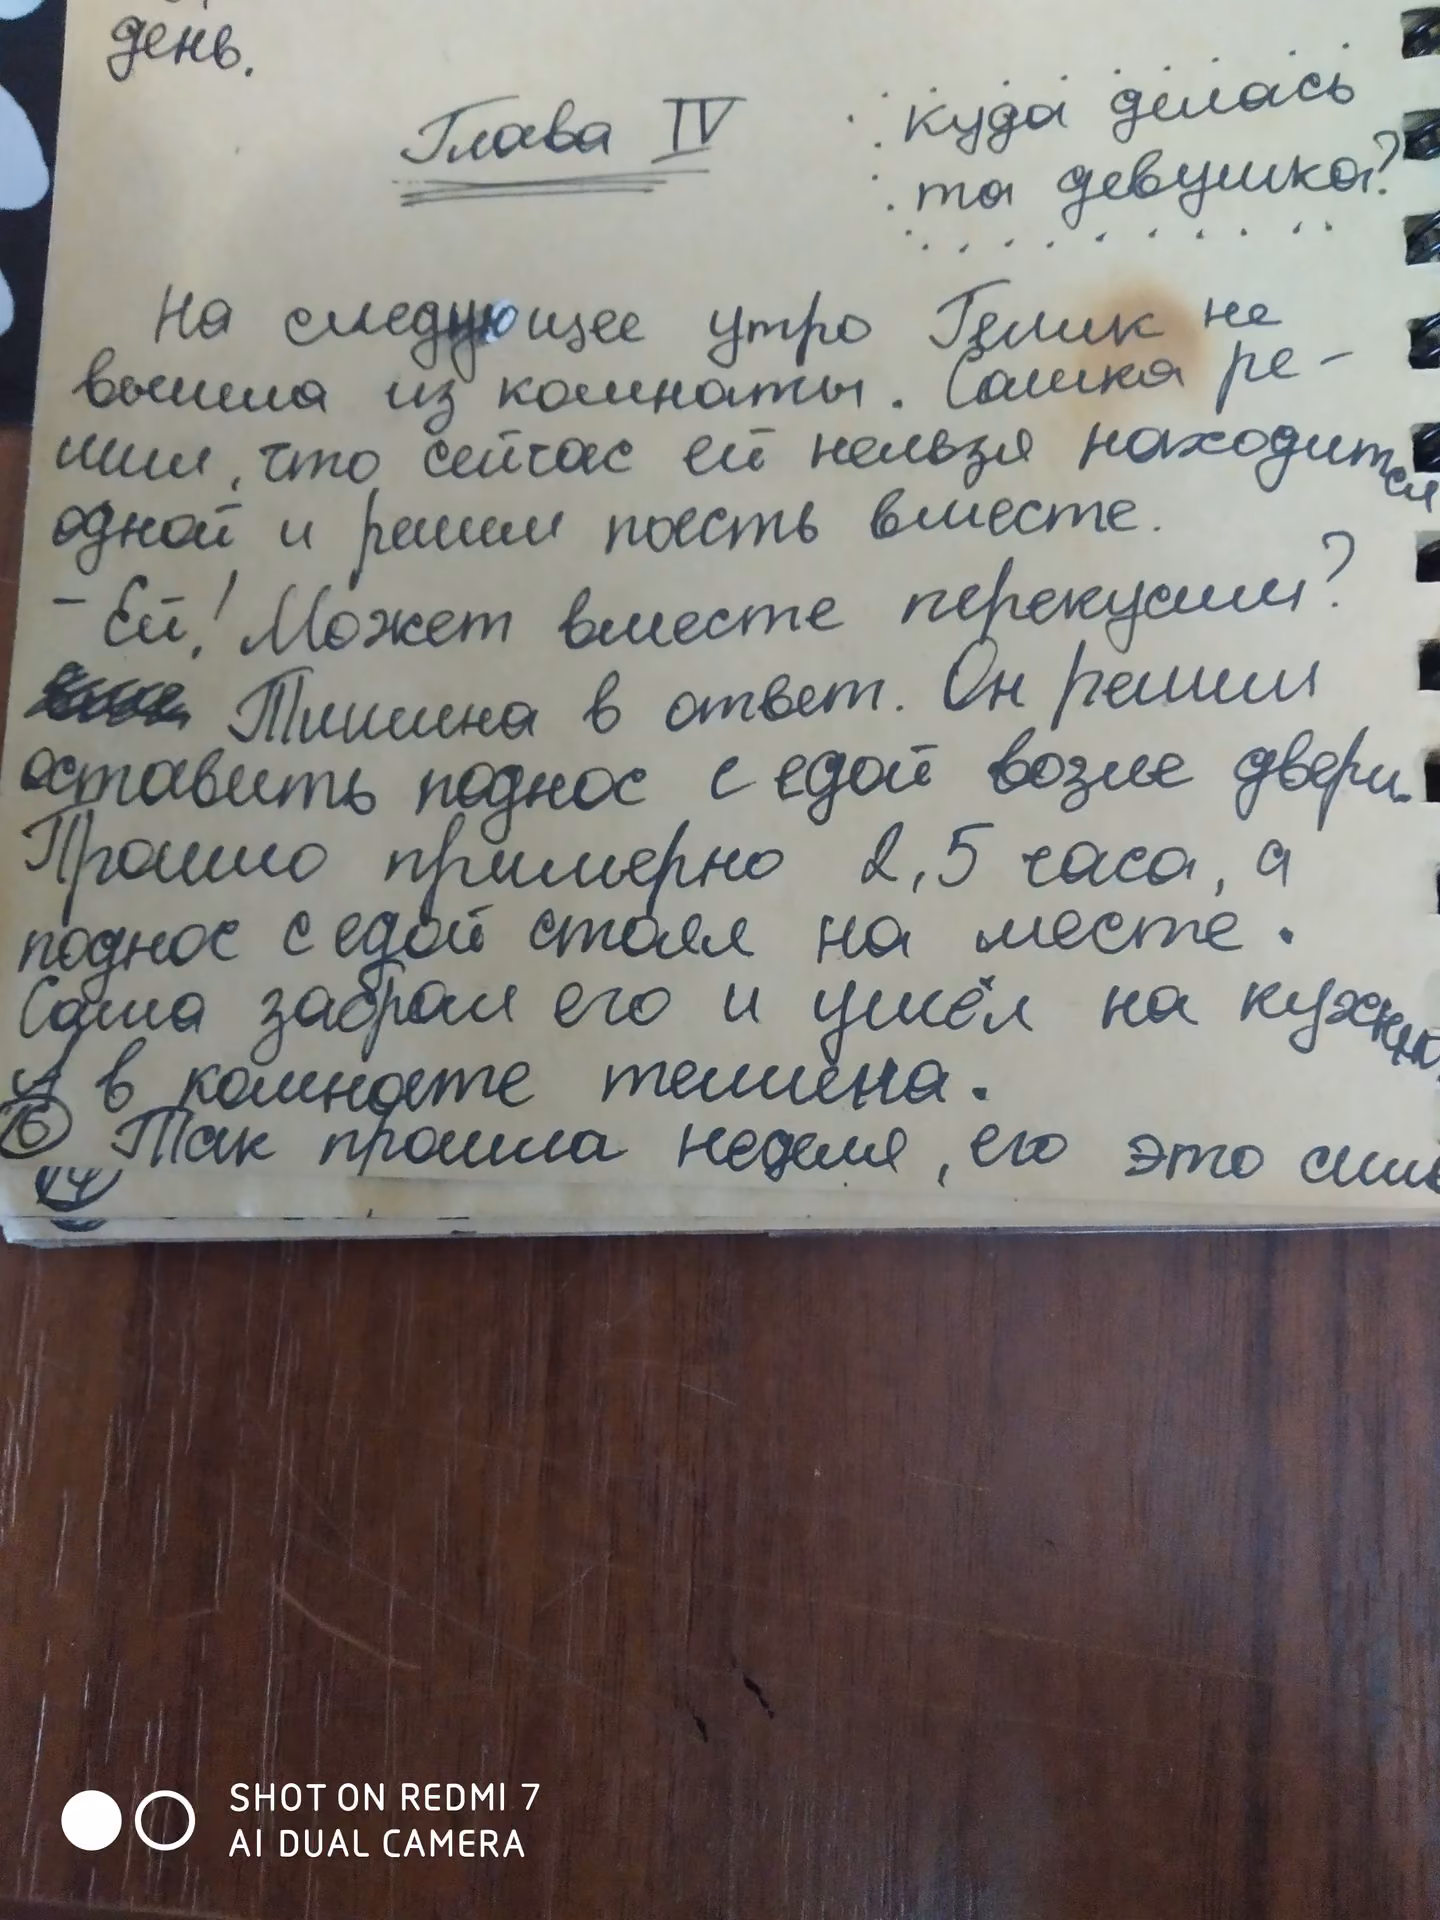 день.
Глава IV
куда делась
та девушка?
На следующее утро Гелик не
вышла из комнаты. Сашка ре-
шил, что сейчас ей нельзя находится
одной и решил поесть вместе.
- Ей! Может вместе перекусим?
Тишина в ответ. Он решил
оставить поднос с едой возле двери.
Прошло примерно 2,5 часа, а
поднос с едой стоял на месте.
Саша забрал его и ушёл на кухню,
в комнате тешина.
Так прошла неделя, его это силь
14
SHOT ON REDMI 7
AI DUAL CAMERA